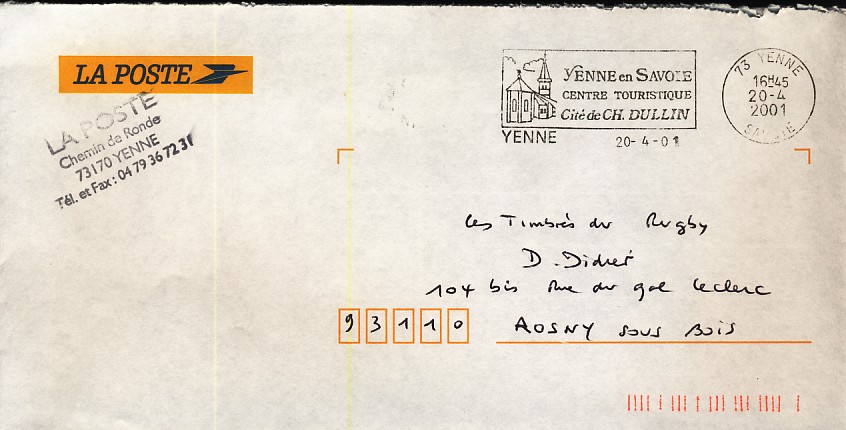 LA POSTE
LA POSTE
Chemin de Ronde
73170 YENNE
Tél. et Fax : 04 79 36 72 31
YENNE en SAVOIE
CENTRE TOURISTIQUE
Cité de CH. DULLIN
YENNE 20-4-01
73 YENNE
16H45
20-4
2001
SAVOIE
Les Timbrés du Rugby
D. Didier
104 bis Rue du gal Leclerc
93110 ROSNY sous Bois